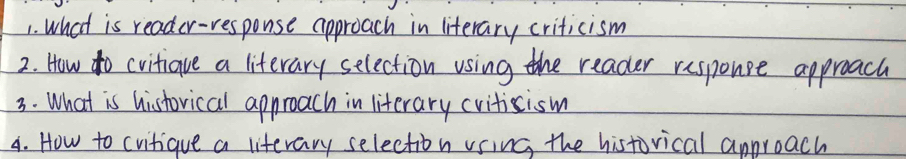 1. What is reader-response approach in literary criticism
2. How to critique a literary selection using the reader response approach
3. What is historical approach in literary criticism
4. How to critique a literary selection using the historical approach